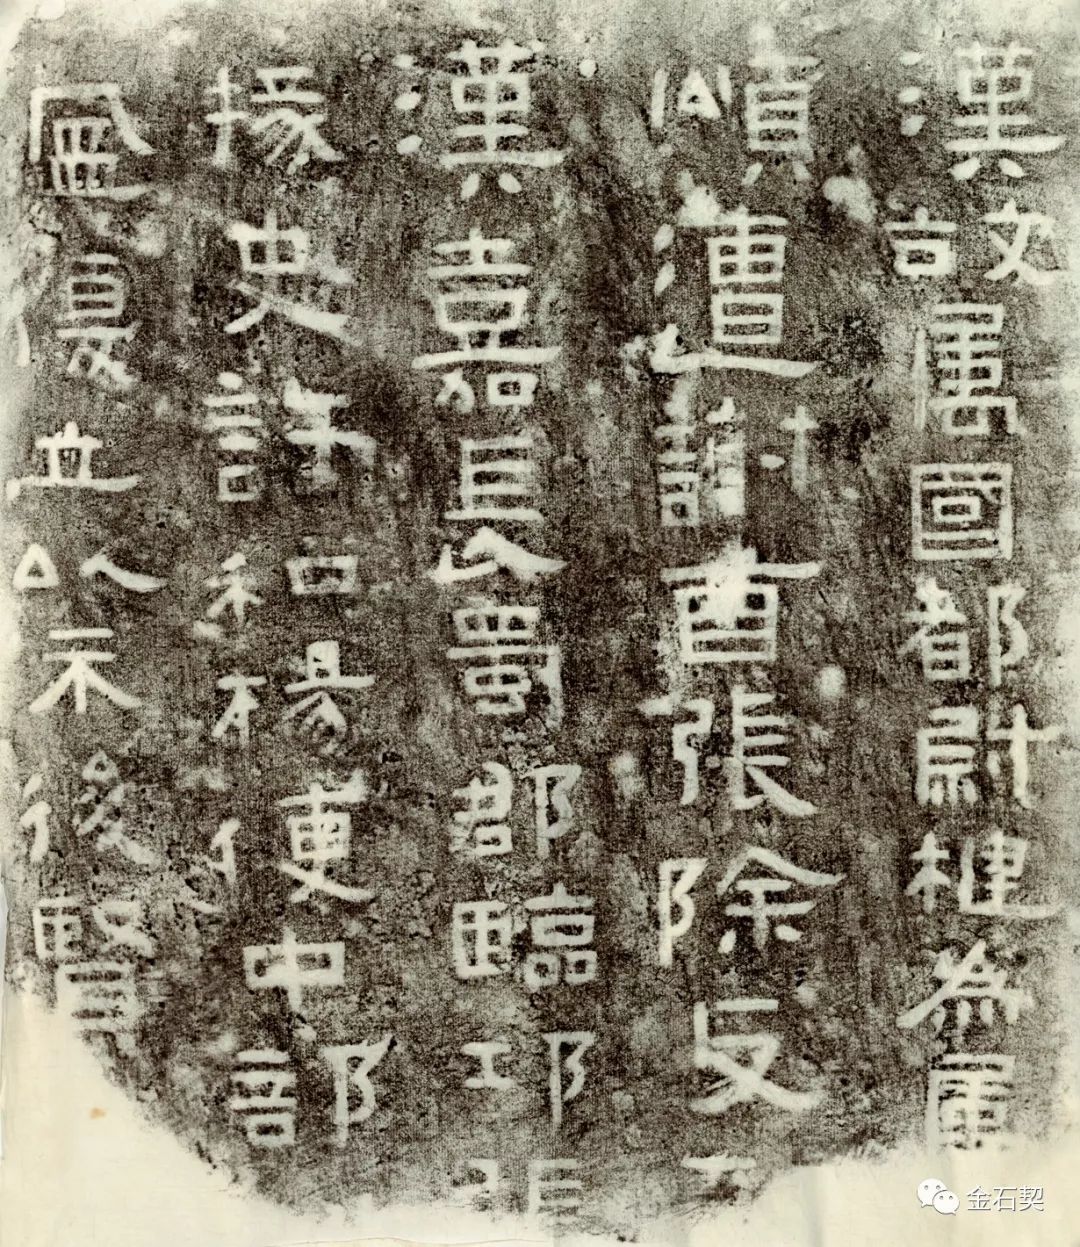 漢故屬國都尉楗為屬
頌遭謝酉張除反
漢嘉長蜀郡臨邛張
掾史許和楊便中部
復立以示後賢
金石契